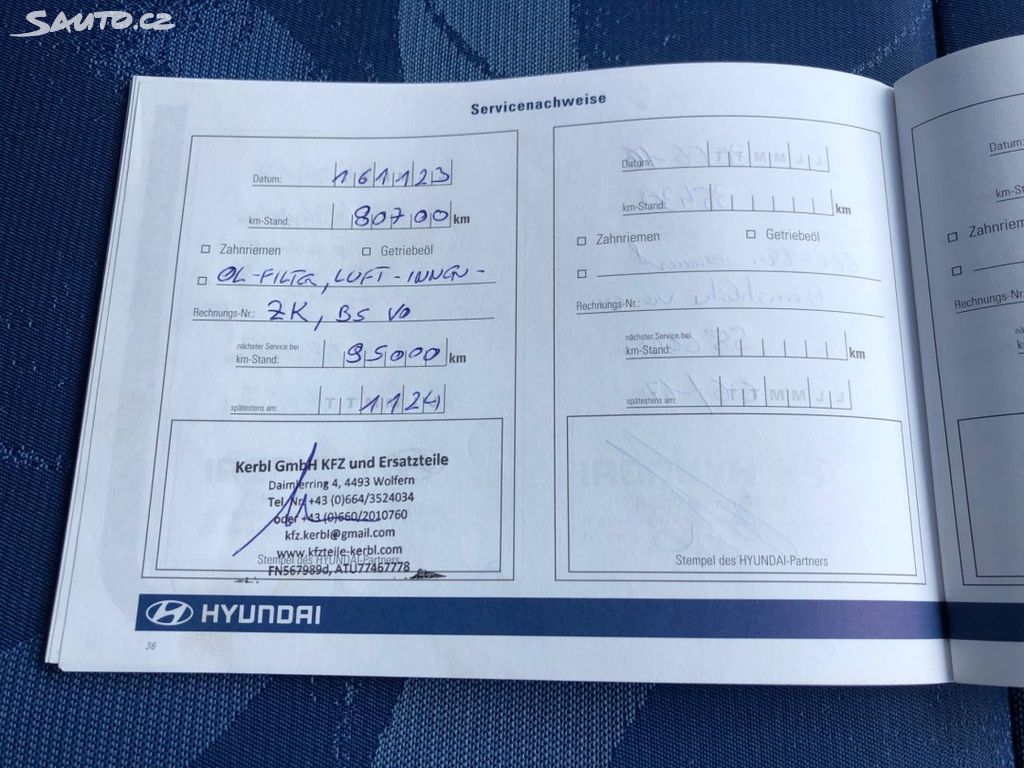 SAUTO.CZ
Servicenachweise
Datum: 161123
km-Stand: 80700 km
Zahnriemen Getriebeöl
ÖL-FILTER, LUFT-INNEN-
Rechnungs-Nr.: ZK, BS VO
nächster Service bei
km-Stand: 95000 km
spätestens am: 1124
Kerbl GmbH KFZ und Ersatzteile
Daimlerring 4, 4493 Wolfern
Tel. Nr. +43 (0)664/3524034
oder +43 (0)660/2010760
kfz.kerbl@gmail.com
www.kfzteile-kerbl.com
Stempel des HYUNDAI-Partners
FN567989d, ATU77467778
Datum:
km-Stand: km
Zahnriemen Getriebeöl
Rechnungs-Nr.:
nächster Service bei
km-Stand: km
spätestens am:
Stempel des HYUNDAI-Partners
Datum:
km-St
Zahnriemen
Rechnungs-Nr.:
HYUNDAI
36